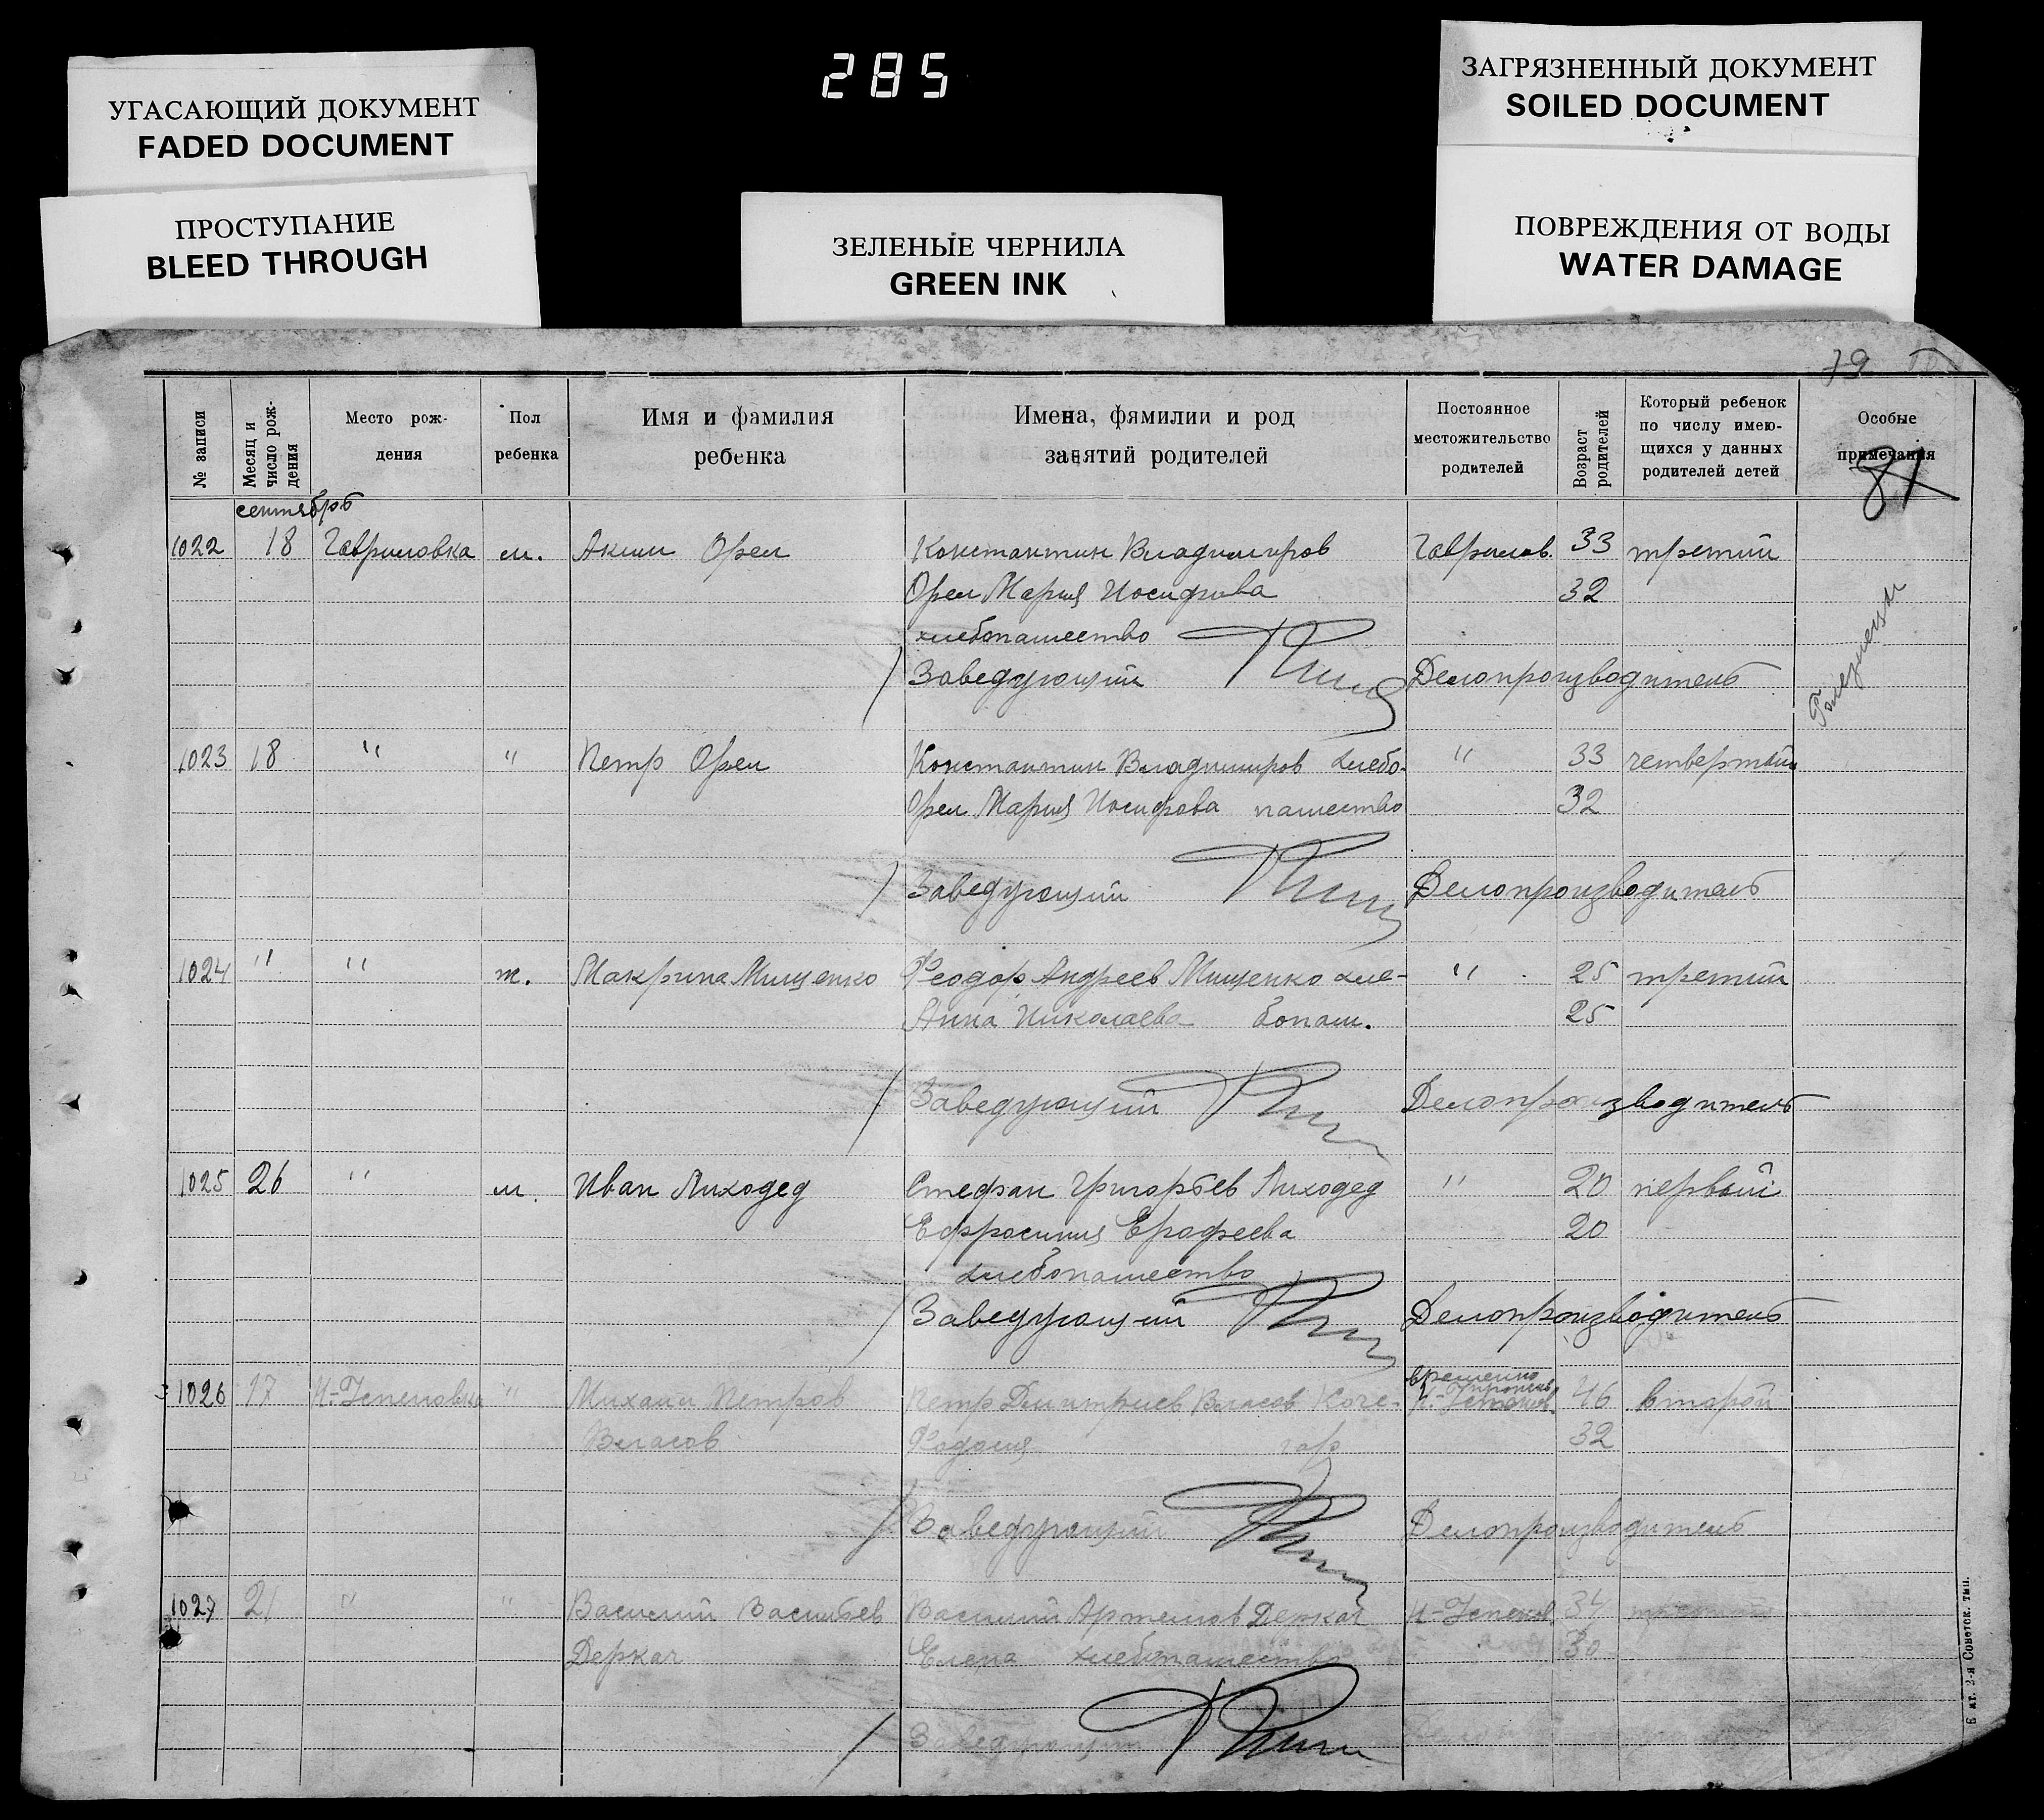 285
УГАСАЮЩИЙ ДОКУМЕНТ
FADED DOCUMENT
ПРОСТУПАНИЕ
BLEED THROUGH
ЗЕЛЕНЫЕ ЧЕРНИЛА
GREEN INK
ЗАГРЯЗНЕННЫЙ ДОКУМЕНТ
SOILED DOCUMENT
ПОВРЕЖДЕНИЯ ОТ ВОДЫ
WATER DAMAGE
79
№ записи
Месяц и число рождения
Место рож-
дения
Пол
ребенка
Имя и фамилия
ребенка
Имена, фямилии и род
занятий родителей
Постоянное
местожительство
родителей
Возраст
родителей
Который ребенок
по числу имею-
щихся у данных
родителей детей
Особые
примечания
81
сентябрь
1022 18 Гавриловка м. Аким Орел Константин Владимиров Гаврилов. 33 третий
Орел Мария Иосифова 32
хлебопашество
Заведующий Делопроизводитель
Близнецы
1023 18 " " Петр Орел Константин Владимиров хлебо- " 33 четвертый
Орел Мария Иосифова пашество 32
Заведующий Делопроизводитель
1024 " " ж. Макрина Мищенко Феодор Андреев Мищенко хле- " 25 третий
Анна Николаева бопаш. 25
Заведующий Делопроизводитель
1025 26 " м. Иван Лиходед Стефан Григорьев Лиходед " 20 первый
Ефросиния Ерофеева 20
хлебопашество
Заведующий Делопроизводитель
временно
1026 17 " Михаил Петров Петр Дмитриев Власов Коче- 46 второй
Власов гар 32
Заведующий Делопроизводитель
1027 21 " " Василий Васильев Василий Артемов Деркач 34
Деркач Елена хлебопашество 30
Заведующий
2-я Советск. тип.